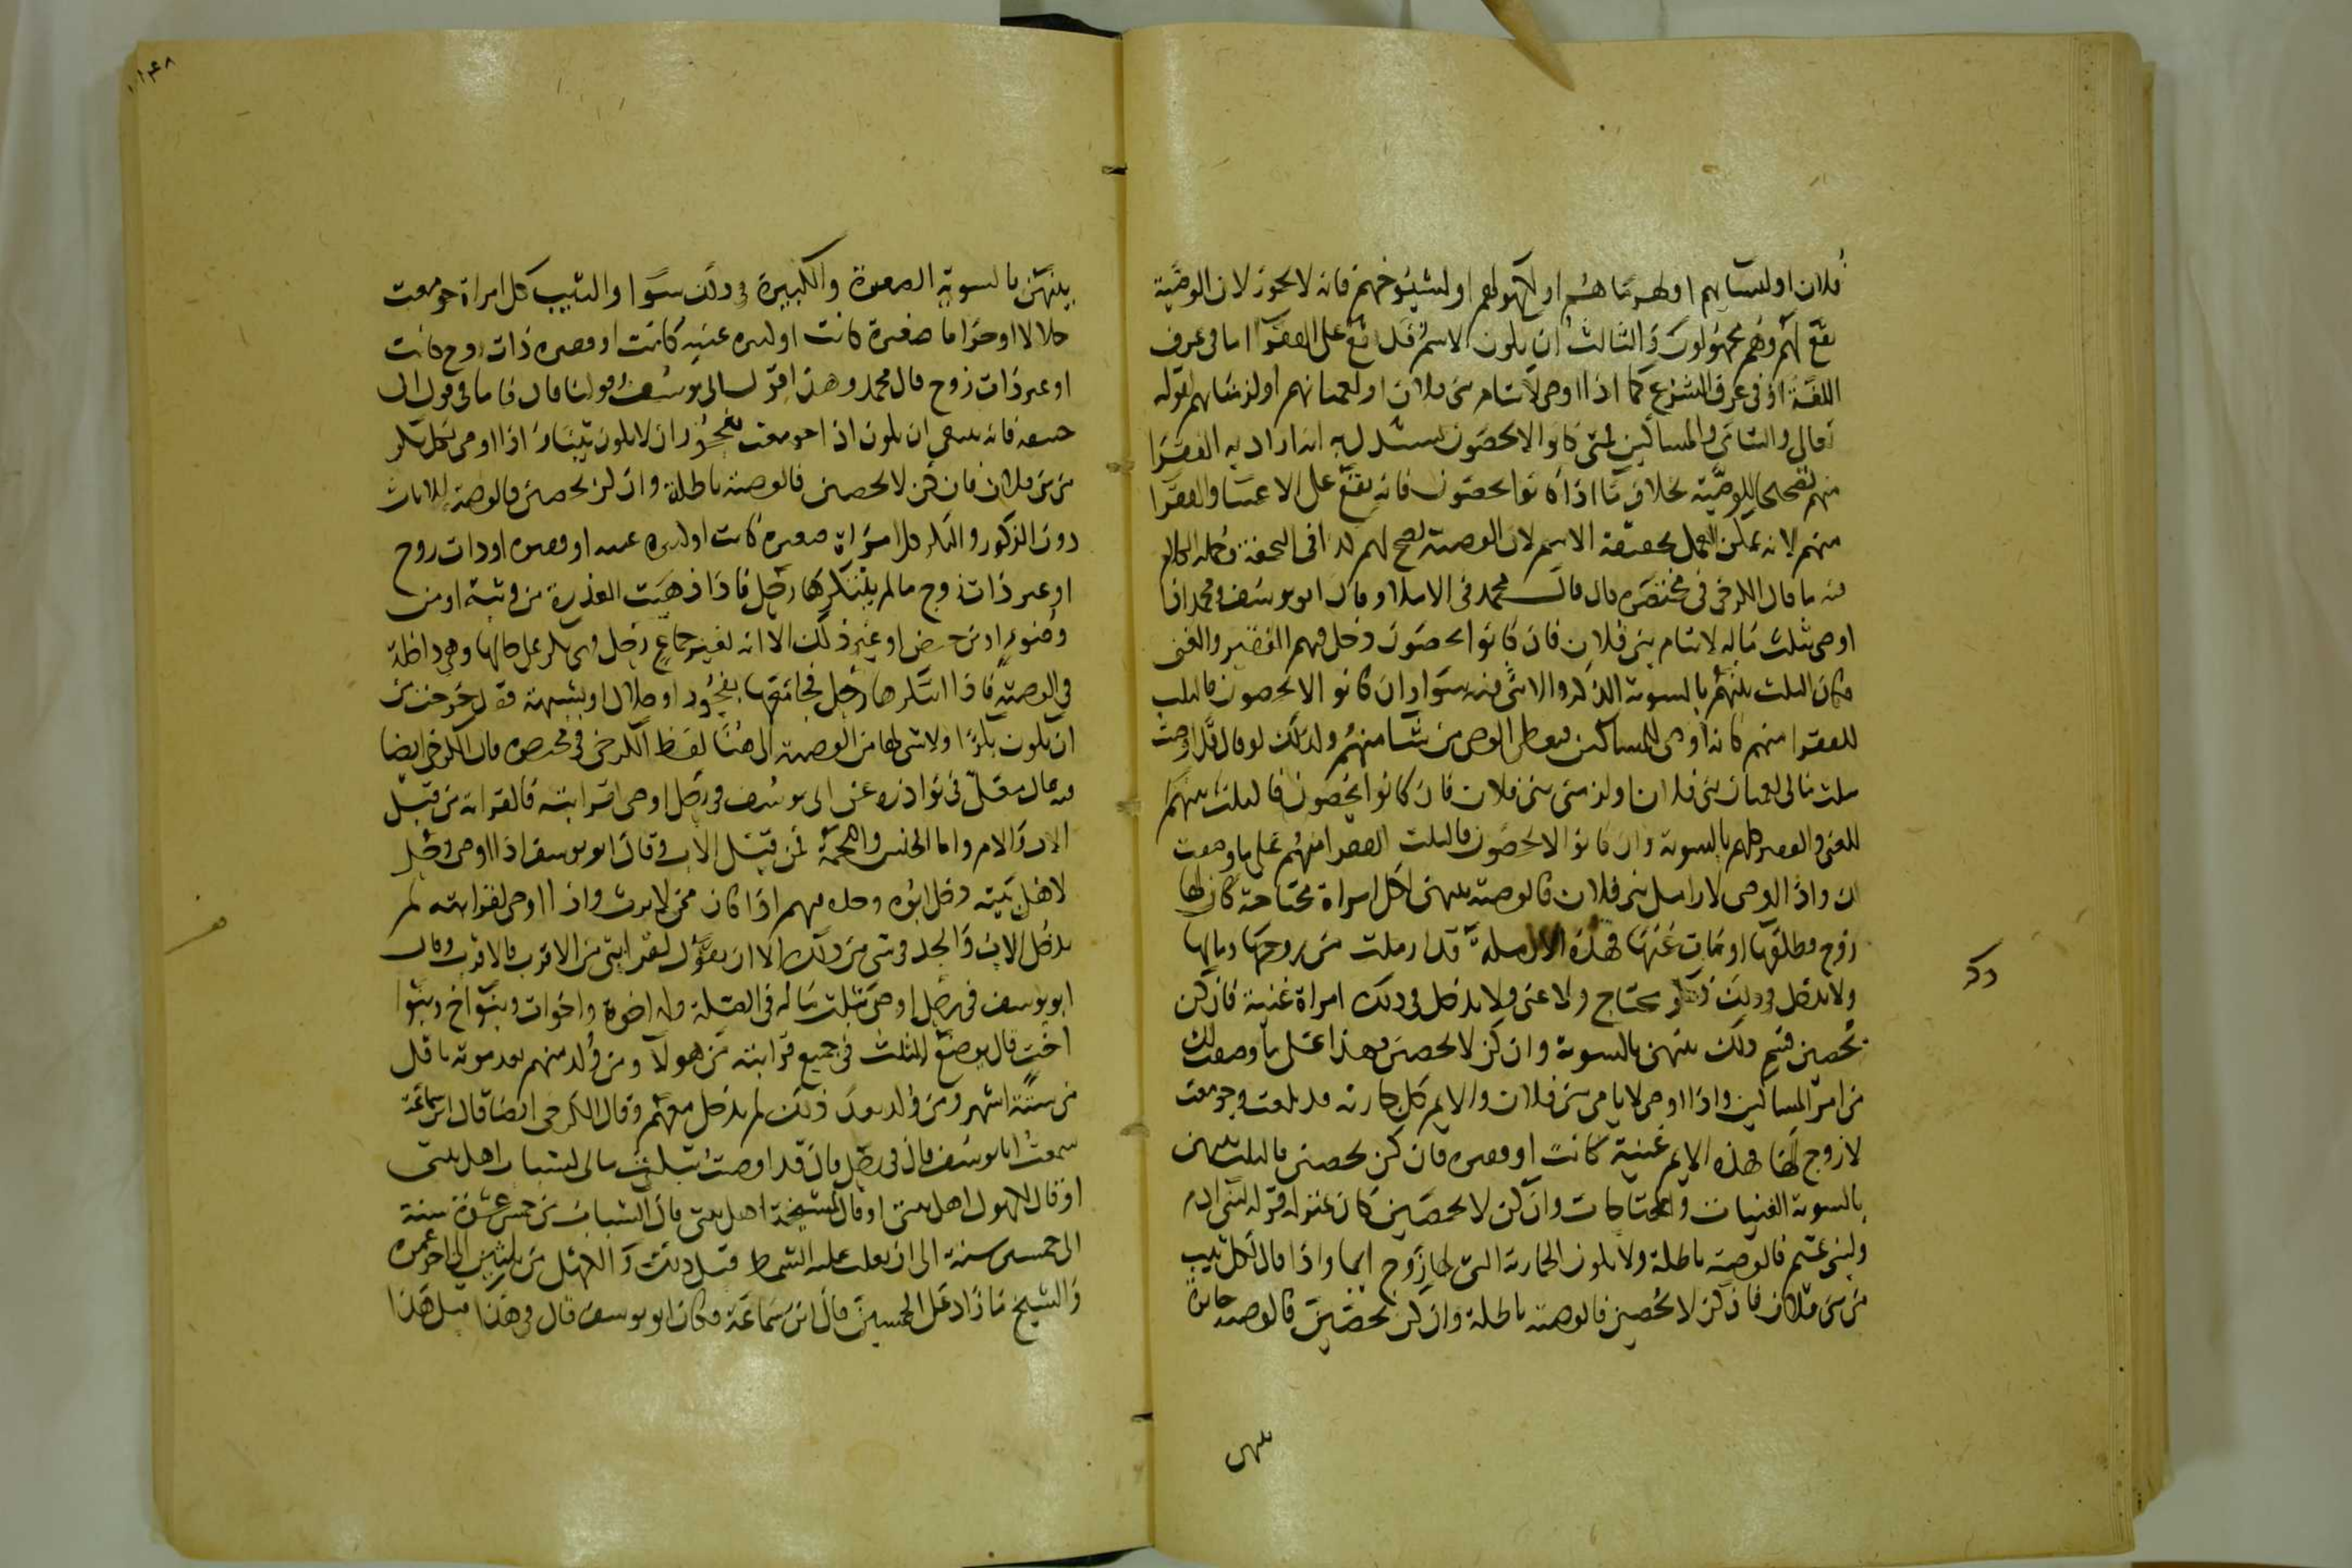 فلان او لنسايهم او لهرماهم او لكهولهم او لشيوخهم فانه لا يجوز لان الوصية
تقع لهم وهم مجهولون والثالث ان يكون الاسم قد تقع على الفقرا اما في عرف
اللغة او في عرف الشرع كما اذا اوصى لايتام بني فلان او لعميانهم او لزمناهم لقوله
تعالى واليتامى والمساكين فمتى كانوا لا يحصون يستدل به انه اراد به الفقرا
منهم تصحيحا للوصية بخلاف ما اذا كانوا يحصون فانه يقع على الاغنيا والفقرا
منهم لانه يمكن العمل بحقيقة الاسم لان الوصية تصح لهم كذا في التحفة وجملة الكلام
فيه ما قال الكرخي في مختصره قال قال محمد في الاملا وقال ابو يوسف ومحمد اذا
اوصى بثلث ماله لايتام بني فلان فان كانوا يحصون دخل فيهم الفقير والغني
فكان الثلث بينهم بالسوية الذكر والانثى فيه سوا وان كانوا لا يحصون فالثلث
للفقرا منهم كانه اوصى للمساكين فيعطى الوصي من شا منهم ولذلك لو قال قد اوصيت
بثلث مالي لعميان بني فلان او لزمنى بني فلان فان كانوا يحصون فالثلث بينهم
للغني والفقير كلهم بالسوية وان كانوا لا يحصون فالثلث للفقرا منهم على ما وصفت
لك واذا اوصى لارامل بني فلان فالوصية بينهن لكل امراة محتاجة كان لها
زوج وطلقها او مات عنها فهذه الارملة قد ارملت من زوجها ومالها
ولا يدخل في ذلك ذكر محتاج ولا غني ولا يدخل في ذلك امراة غنية فان كن
يحصين قسم ذلك بينهن بالسوية وان كن لا يحصين فهذا على ما وصفت لك
من امر المساكين واذا اوصى لايامى بني فلان والايم كل جارية قد بلغت وجومعت
لا زوج لها فهذه الايم غنية كانت او فقيرة فان كن يحصين فالثلث بينهن
بالسوية الغنيات والمحتاجات وان كن لا يحصين كان بمنزلة قوله لبني ادم
ولبني تميم فالوصية باطلة ولا يكون الجارية التي لها زوج ايما واذا قال لكل ثيب
من بني فلان فان كن لا يحصين فالوصية باطلة وان كن يحصين فالوصية جايزة
بينهن
ذكر
بينهن بالسوية الصغيرة والكبيرة في ذلك سوا والثيب كل امراة جومعت
حلالا او حراما صغيرة كانت او كبيرة غنية كانت او فقيرة ذات زوج كانت
او غير ذات زوج قال محمد وهذا قول ابي يوسف وقولنا قال فاما في قول ابي
حنيفة فانه ينبغي ان يكون اذا جومعت بفجور ان لا يكون ثيبا واذا اوصى لكل بكر
من بني فلان فان كن لا يحصين فالوصية باطلة وان كن يحصين فالوصية للاناث
دون الذكور والبكر كل امراة صغيرة كانت او كبيرة غنية او فقيرة او ذات زوج
او غير ذات زوج ما لم يبتكرها رجل فاذا ذهبت العذرة من وثبة او من
وضوء او من حيض او غير ذلك الا انه لغير جماع رجل فهي بكر على حالها وهي داخلة
في الوصية فاذا ابتكرها رجل فجامعها بفجور او حلال او بشبهة فقد خرجت من
ان يكون بكرا ولا شي لها من الوصية الى هنا لفظ الكرخي في مختصره قال الكرخي ايضا
فيه قال معلى في نوادره عن ابي يوسف في رجل اوصى لقرابته فالقرابة من قبل
الاب والام واما الجنس واللحمة فمن قبل الاب وقال ابو يوسف اذا اوصى رجل
لاهل بيته دخل ابوه وجده فيهم اذا كان ممن لا يرث واذا اوصى لقرابته لم
يدخل الاب والجد في شي من ذلك الا ان يقول لقرابتي من الاقرب فالاقرب وقال
ابو يوسف في رجل اوصى بثلث ماله في الصلة وله اخوة واخوات وبنو اخ وبنو
اخت قال يوضع الثلث في جميع قرابته من هولا ومن ولد منهم بعد موته باقل
من ستة اشهر ومن ولد بعد ذلك لم يدخل معهم وقال الكرخي ايضا قال ابن سماعة
سمعت ابا يوسف قال في رجل قال قد اوصيت بثلث مالي لشباب اهل بيتي
او قال لكهول اهل بيتي او قال لمشيخة اهل بيتي قال الشباب من خمس عشرة سنة
الى خمسين سنة الى ان يغلب عليه الشمط قبل ذلك والكهل من ثلثين الى اخر عمره
والشيخ ما زاد على الخمسين قال ابن سماعة وكان ابو يوسف قال في هذا قبل هذا